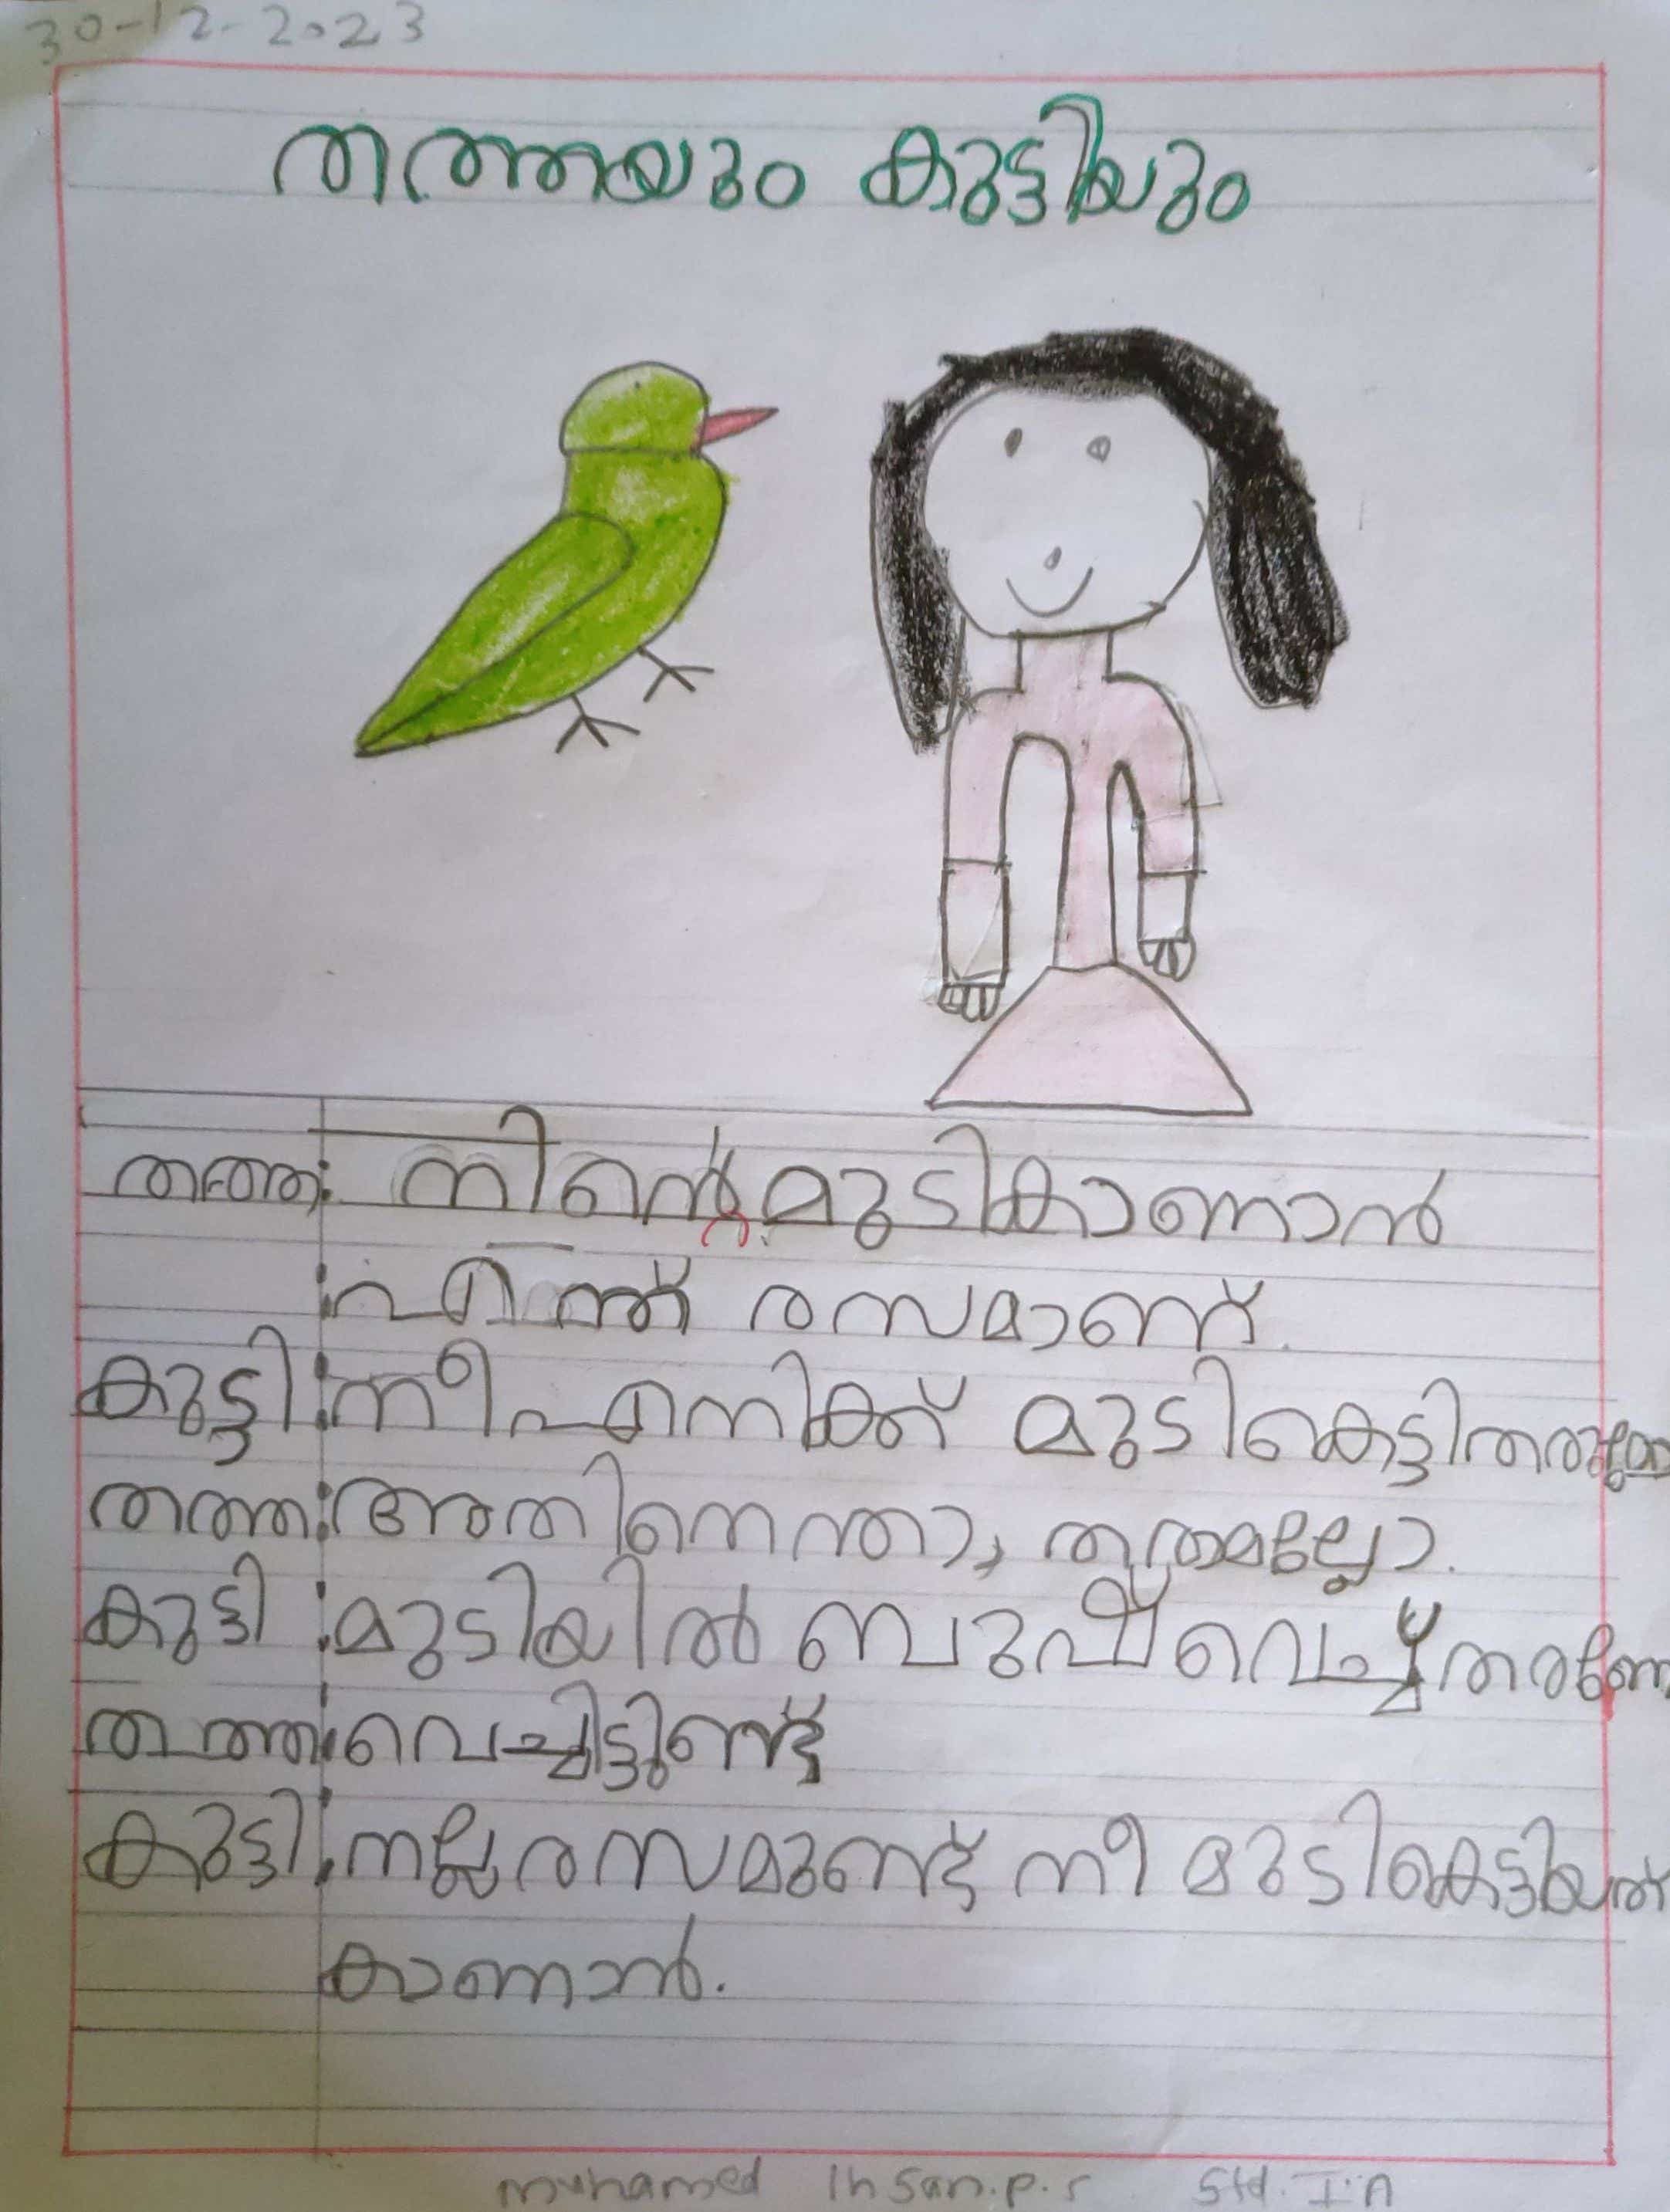 30-12-2023
തത്തയും കുട്ടിയും
തത്ത: നിന്റെ മുടികാണാൻ
എന്ത് രസമാണ്.
കുട്ടി: നീ എനിക്ക് മുടികെട്ടിതരുമോ
തത്ത: അതിനെന്താ, തരാമല്ലോ.
കുട്ടി: മുടിയിൽ ബുഷ് വെച്ച് തരണേ
തത്ത: വെച്ചിട്ടുണ്ട്
കുട്ടി: നല്ല രസമുണ്ട് നീ മുടികെട്ടിയത്
കാണാൻ.
muhamed Ihsan.p.s Std. I A